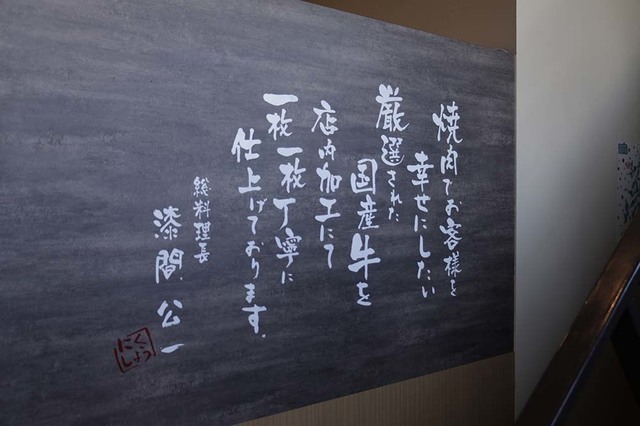 焼肉でお客様を
幸せにしたい
厳選された
国産牛を
店内加工にて
一枚一枚丁寧に
仕上げております.
総料理長
漆間 公一
にくしょう